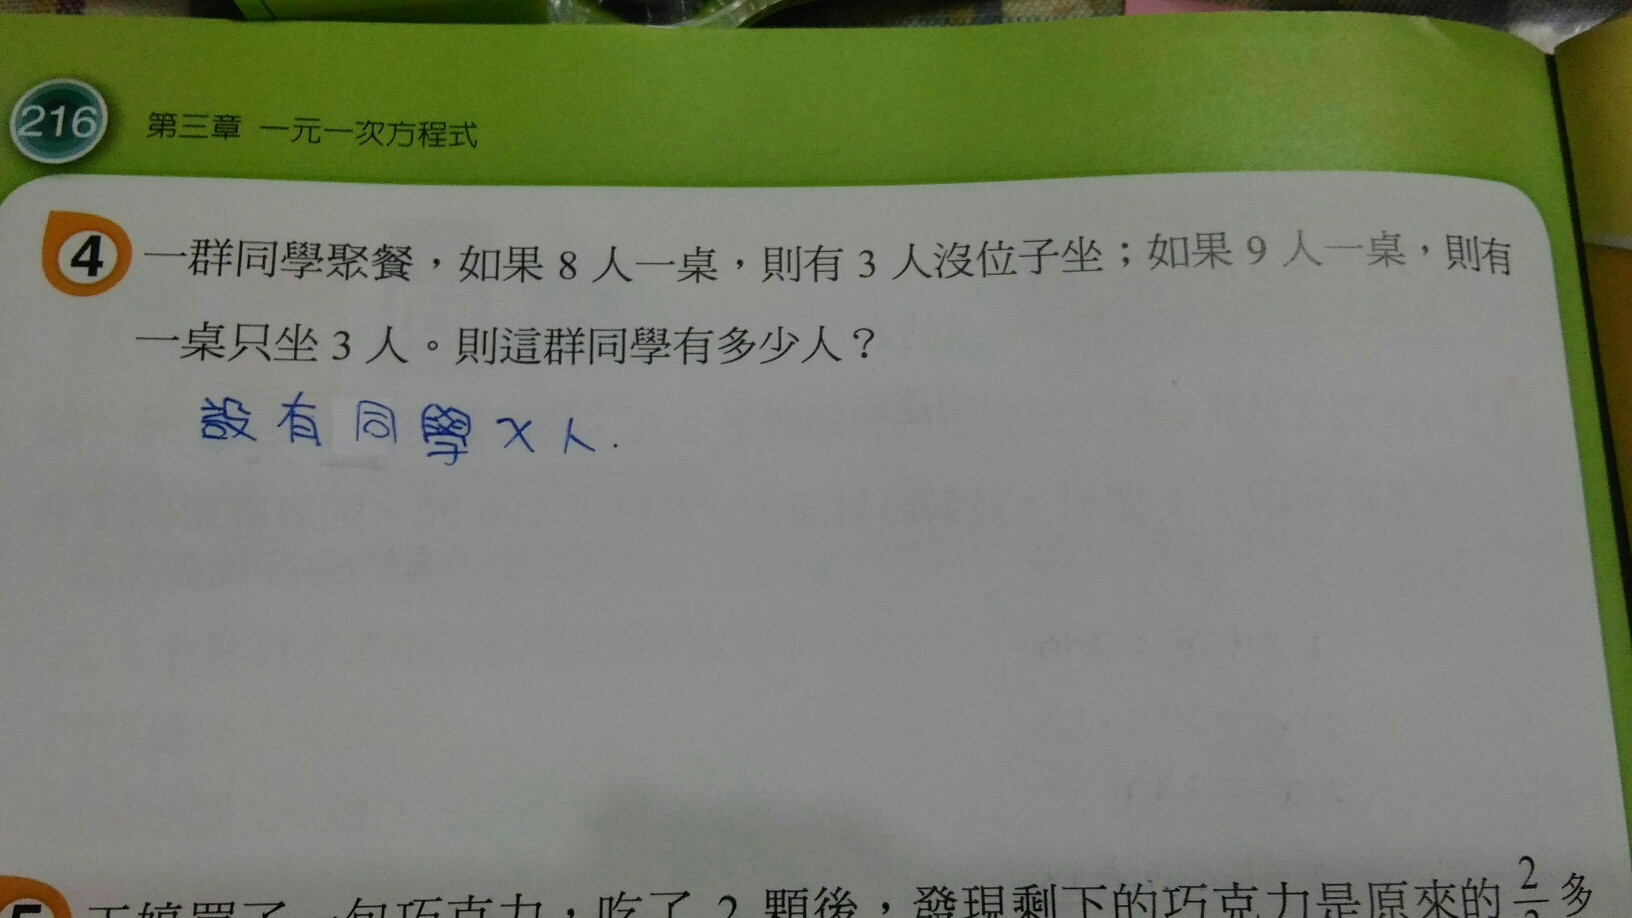 216 第三章 一元一次方程式
4 一群同學聚餐，如果 8 人一桌，則有 3 人沒位子坐；如果 9 人一桌，則有
一桌只坐 3 人。則這群同學有多少人？
設有同學 x 人.
一包巧克力，吃了 2 顆後，發現剩下的巧克力是原來的 多